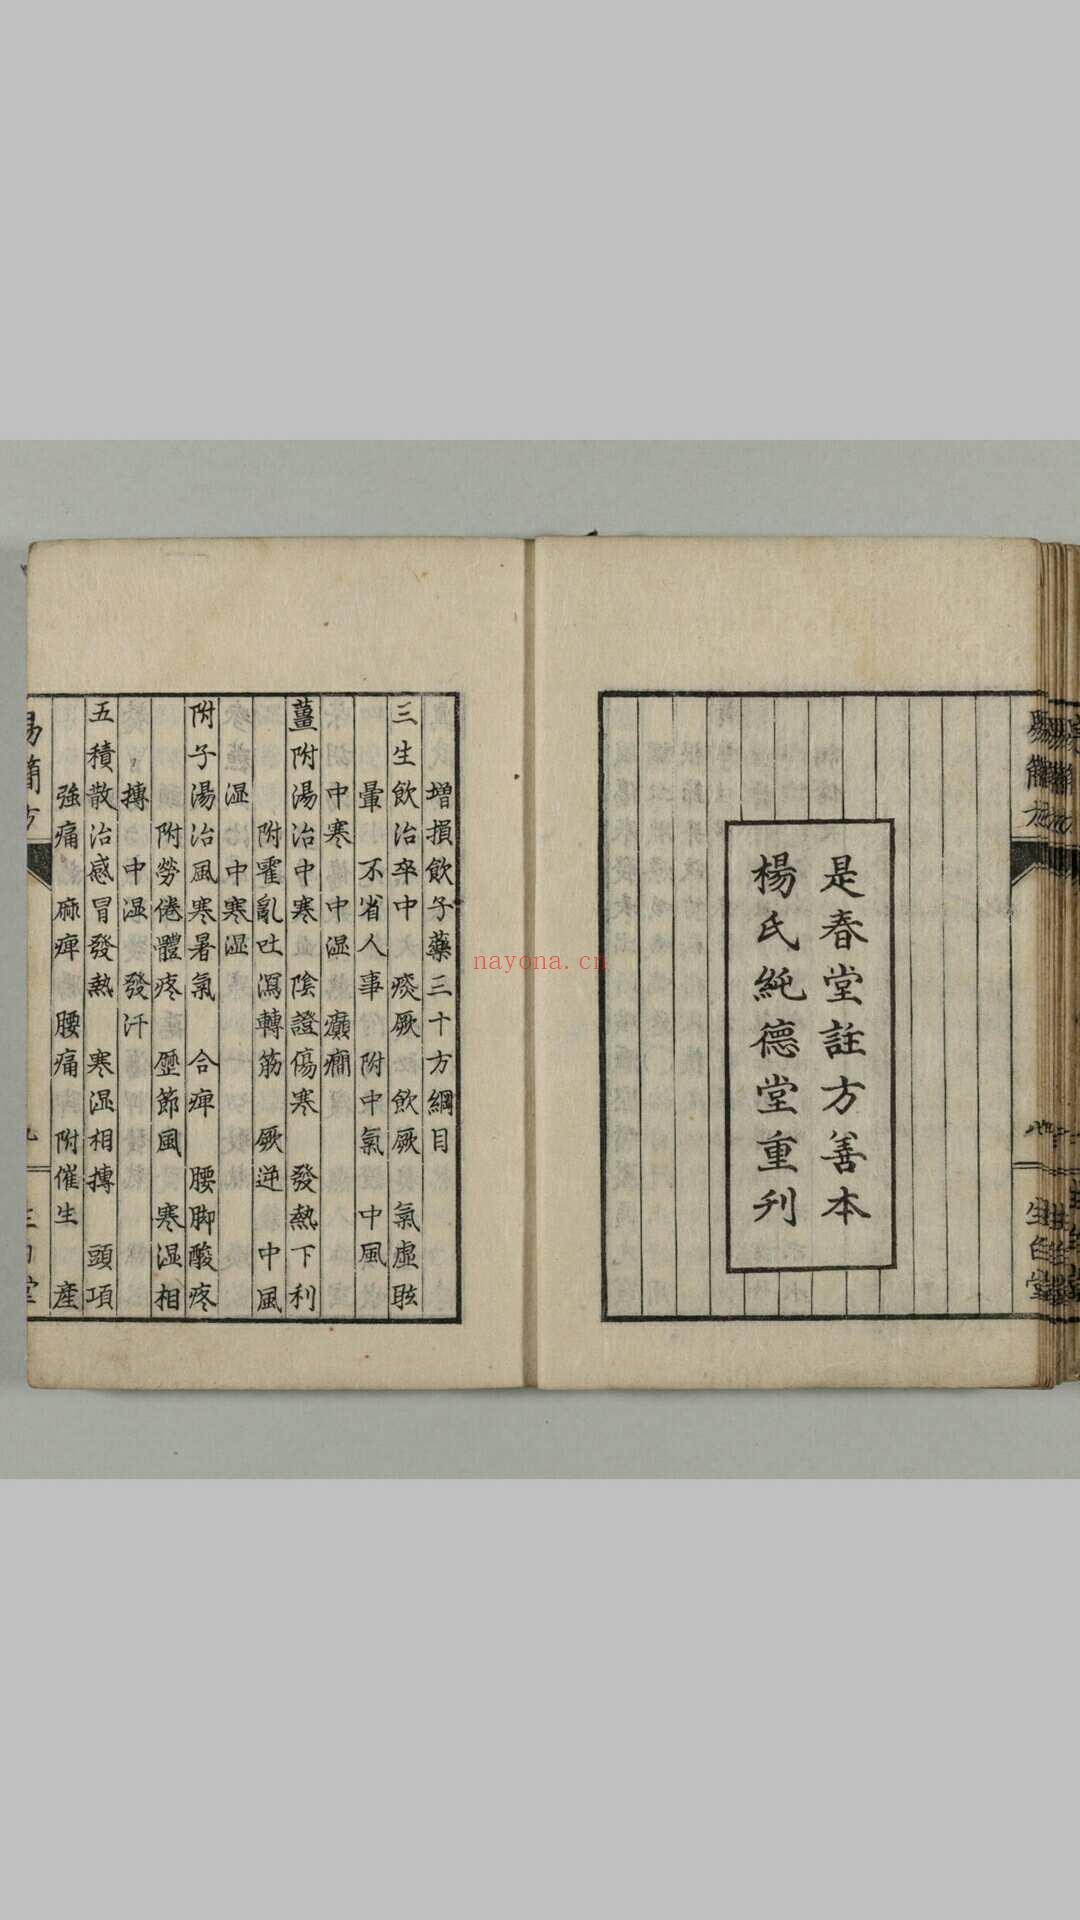 是春堂註方善本
楊氏純德堂重刋
增損飲子藥三十方綱目
三生飲治卒中　痰厥　飲厥　氣虛眩
暈　不省人事　附中氣　中風
中寒　中湿　癲癇
薑附湯治中寒　陰證傷寒　發熱下利
附霍亂吐瀉轉筋　厥逆　中風
湿　中寒湿
附子湯治風寒暑氣　合痺　腰脚酸疼
附勞倦體疼　歷節風　寒湿相
摶　中湿　發汗
五積散治感冒發熱　寒湿相摶　頭項
強痛　麻痺　腰痛　附催生　產
易簡方
nayona.cn